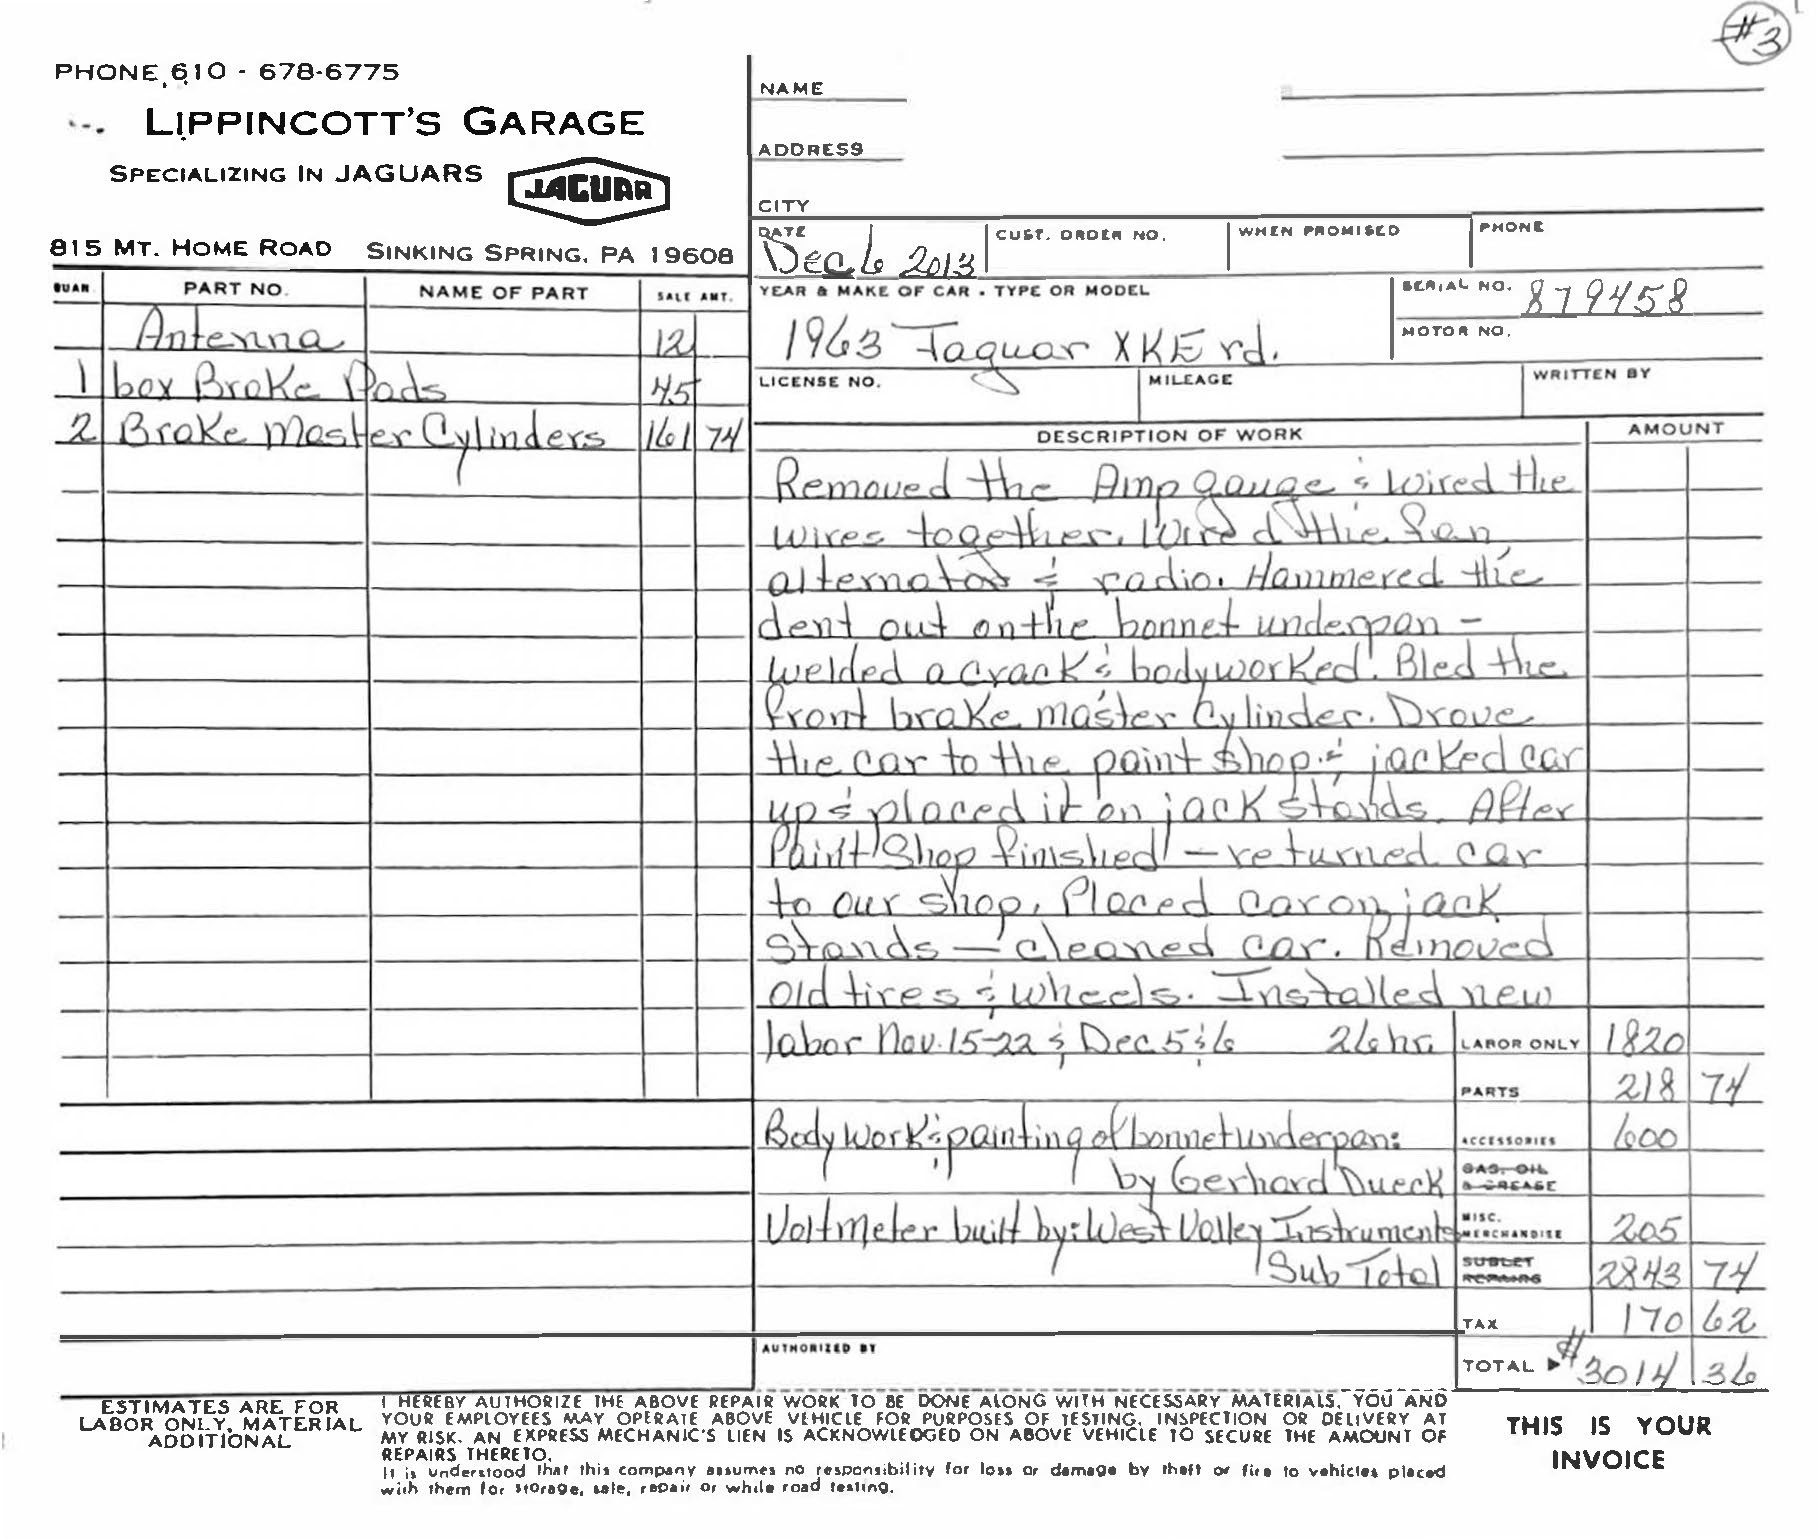 #3
PHONE 610 - 678-6775
LIPPINCOTT'S GARAGE
SPECIALIZING IN JAGUARS
JAGUAR
815 MT. HOME ROAD SINKING SPRING, PA 19608
NAME
ADDRESS
CITY
DATE Dec 6 2013 CUST. ORDER NO. WHEN PROMISED PHONE
YEAR & MAKE OF CAR - TYPE OR MODEL SERIAL NO. 879458
1963 Jaguar XKE rd. MOTOR NO.
LICENSE NO. MILEAGE WRITTEN BY
QUAN. PART NO. NAME OF PART SALE AMT.
Antenna 12
1 box Brake Pads 45
2 Brake Master Cylinders 161 74
DESCRIPTION OF WORK AMOUNT
Removed the Amp gauge & wired the
wires together. Wired the fan,
alternator & radio. Hammered the
dent out on the bonnet underpan -
welded a crack & bodyworked. Bled the
front brake master cylinder. Drove
the car to the paint shop & jacked car
up & placed it on jack stands. After
Paint Shop finished - returned car
to our shop. Placed car on jack
stands - cleaned car. Removed
old tires & wheels. Installed new
labor Nov. 15-22 & Dec. 5 & 6 26 hr. LABOR ONLY 1820
PARTS 218 74
Body Work & painting of bonnet underpan: ACCESSORIES 600
by Gerhard Dueck GAS, OIL & GREASE
Voltmeter built by: West Valley Instruments MISC. MERCHANDISE 205
Sub Total SUBLET REPAIRS 2843 74
TAX 170 62
AUTHORIZED BY TOTAL $3014 36
ESTIMATES ARE FOR
LABOR ONLY, MATERIAL
ADDITIONAL
I HEREBY AUTHORIZE THE ABOVE REPAIR WORK TO BE DONE ALONG WITH NECESSARY MATERIALS, YOU AND
YOUR EMPLOYEES MAY OPERATE ABOVE VEHICLE FOR PURPOSES OF TESTING, INSPECTION OR DELIVERY AT
MY RISK. AN EXPRESS MECHANIC'S LIEN IS ACKNOWLEDGED ON ABOVE VEHICLE TO SECURE THE AMOUNT OF
REPAIRS THERETO.
It is understood that this company assumes no responsibility for loss or damage by theft or fire to vehicles placed
with them for storage, sale, repair or while road testing.
THIS IS YOUR
INVOICE